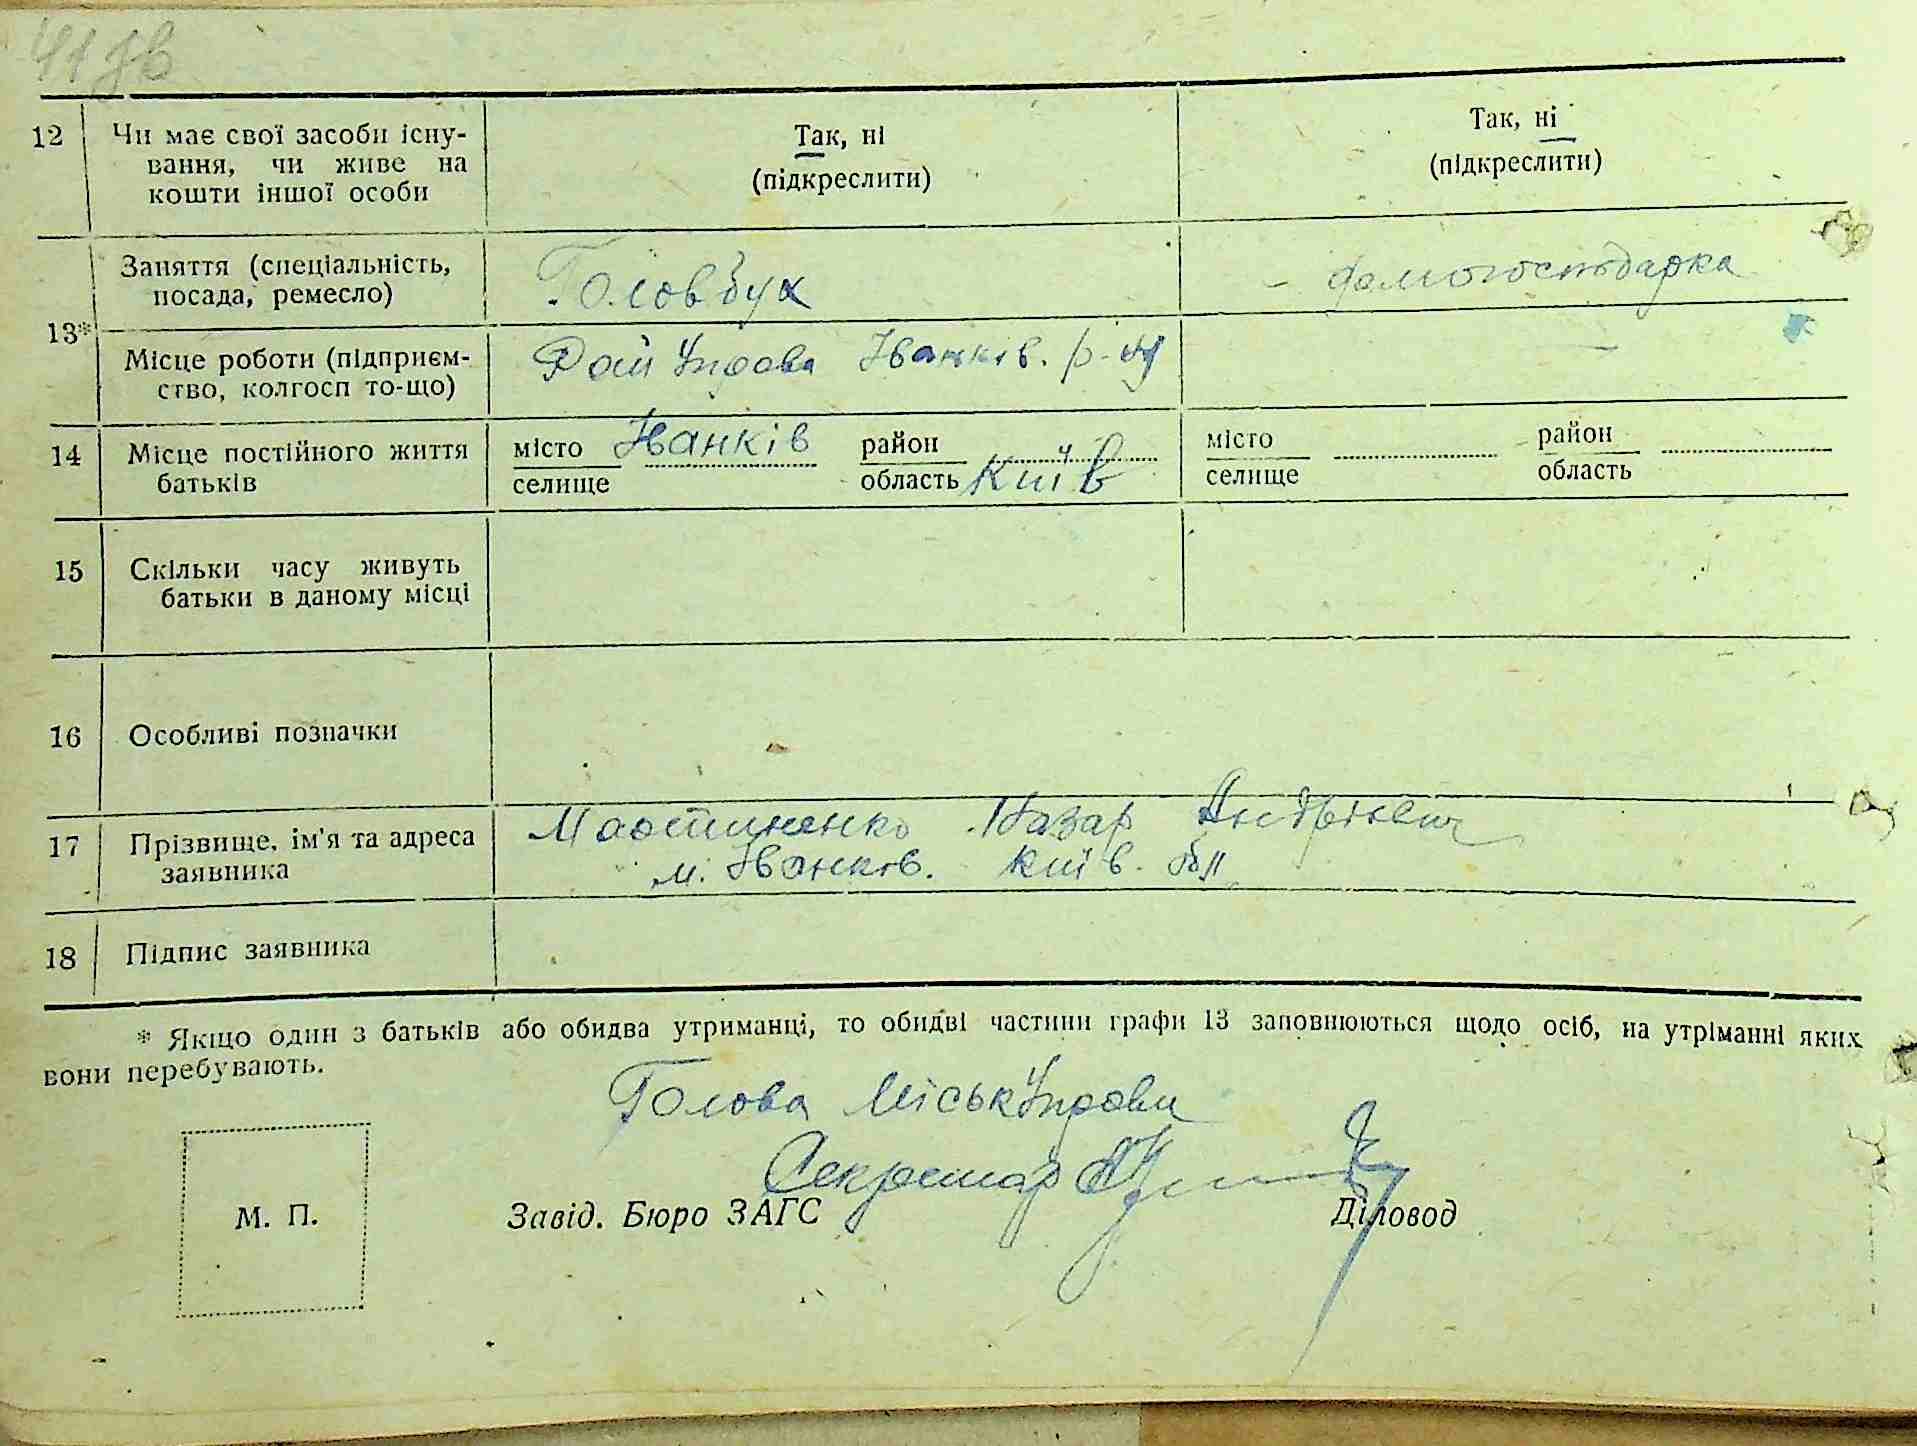 41 зв
12 Чи має свої засоби існу-
вання, чи живе на
кошти іншої особи
Так, ні
(підкреслити)
Так, ні
(підкреслити)
13*
Заняття (спеціальність,
посада, ремесло)
Головбух
домогосподарка
Місце роботи (підприєм-
ство, колгосп то-що)
Рай Управа Іванків. р-ну
—
14 Місце постійного життя
батьків
місто Іванків район
селище область Київ
місто район
селище область
15 Скільки часу живуть
батьки в даному місці
16 Особливі позначки
17 Прізвище, ім'я та адреса
заявника
Мартиненко Назар Андрієвич
м. Іванков. Київ. обл
18 Підпис заявника
* Якщо один з батьків або обидва утриманці, то обидві частини графи 13 заповнюються щодо осіб, на утріманні яких
вони перебувають.
Голова МіськУправи
Секретар
М. П.
Завід. Бюро ЗАГС
Діловод